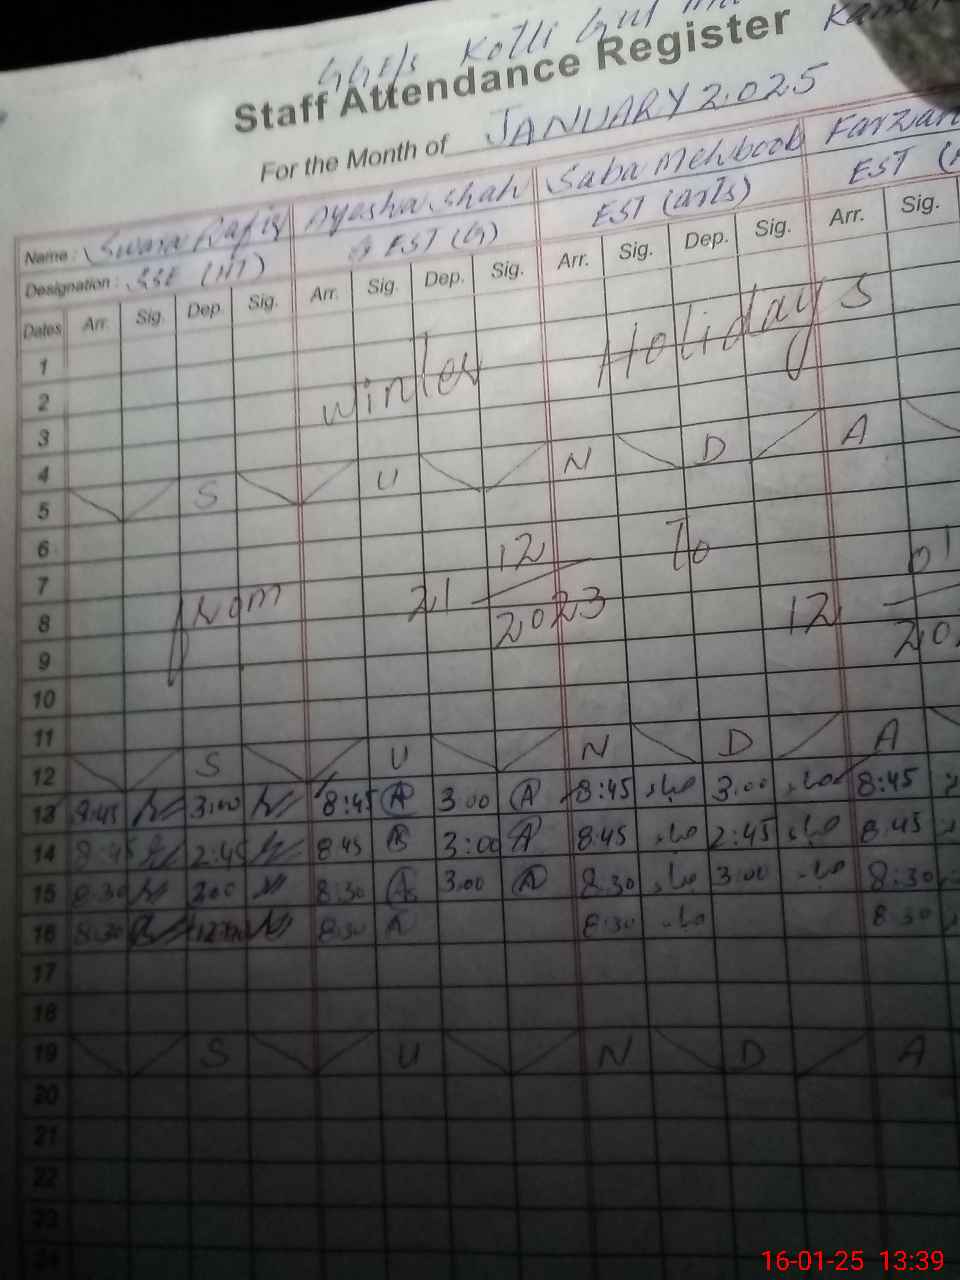 GGE/s Kotli Gul
Staff Attendance Register
For the Month of JANUARY 2025
Name : Swara Rafiq Ayesha Shah Saba Mehboob Farzan
Designation : SSE (HT) EST (G) EST (arts) EST
Dates Arr. Sig. Dep. Sig. Arr. Sig. Dep. Sig. Arr. Sig. Dep. Sig. Arr. Sig.
1
2 Winter Holidays
3
4
5 S U N D A
6
7
8 from 21 12/2023 To 12 01
9
10
11
12 S U N D A
13 8:45 3:00 8:45 A 3:00 A 8:45 صباء 3:00 صباء 8:45
14 8:45 2:45 8:45 A 3:00 A 8:45 صباء 2:45 صباء 8:45
15 8:30 3:00 8:30 A 3:00 A 8:30 صباء 3:00 صباء 8:30
16 8:30 8:30 A 8:30 صباء 8:30
17
18
19 S U N D A
20
21
22
23
24
16-01-25 13:39